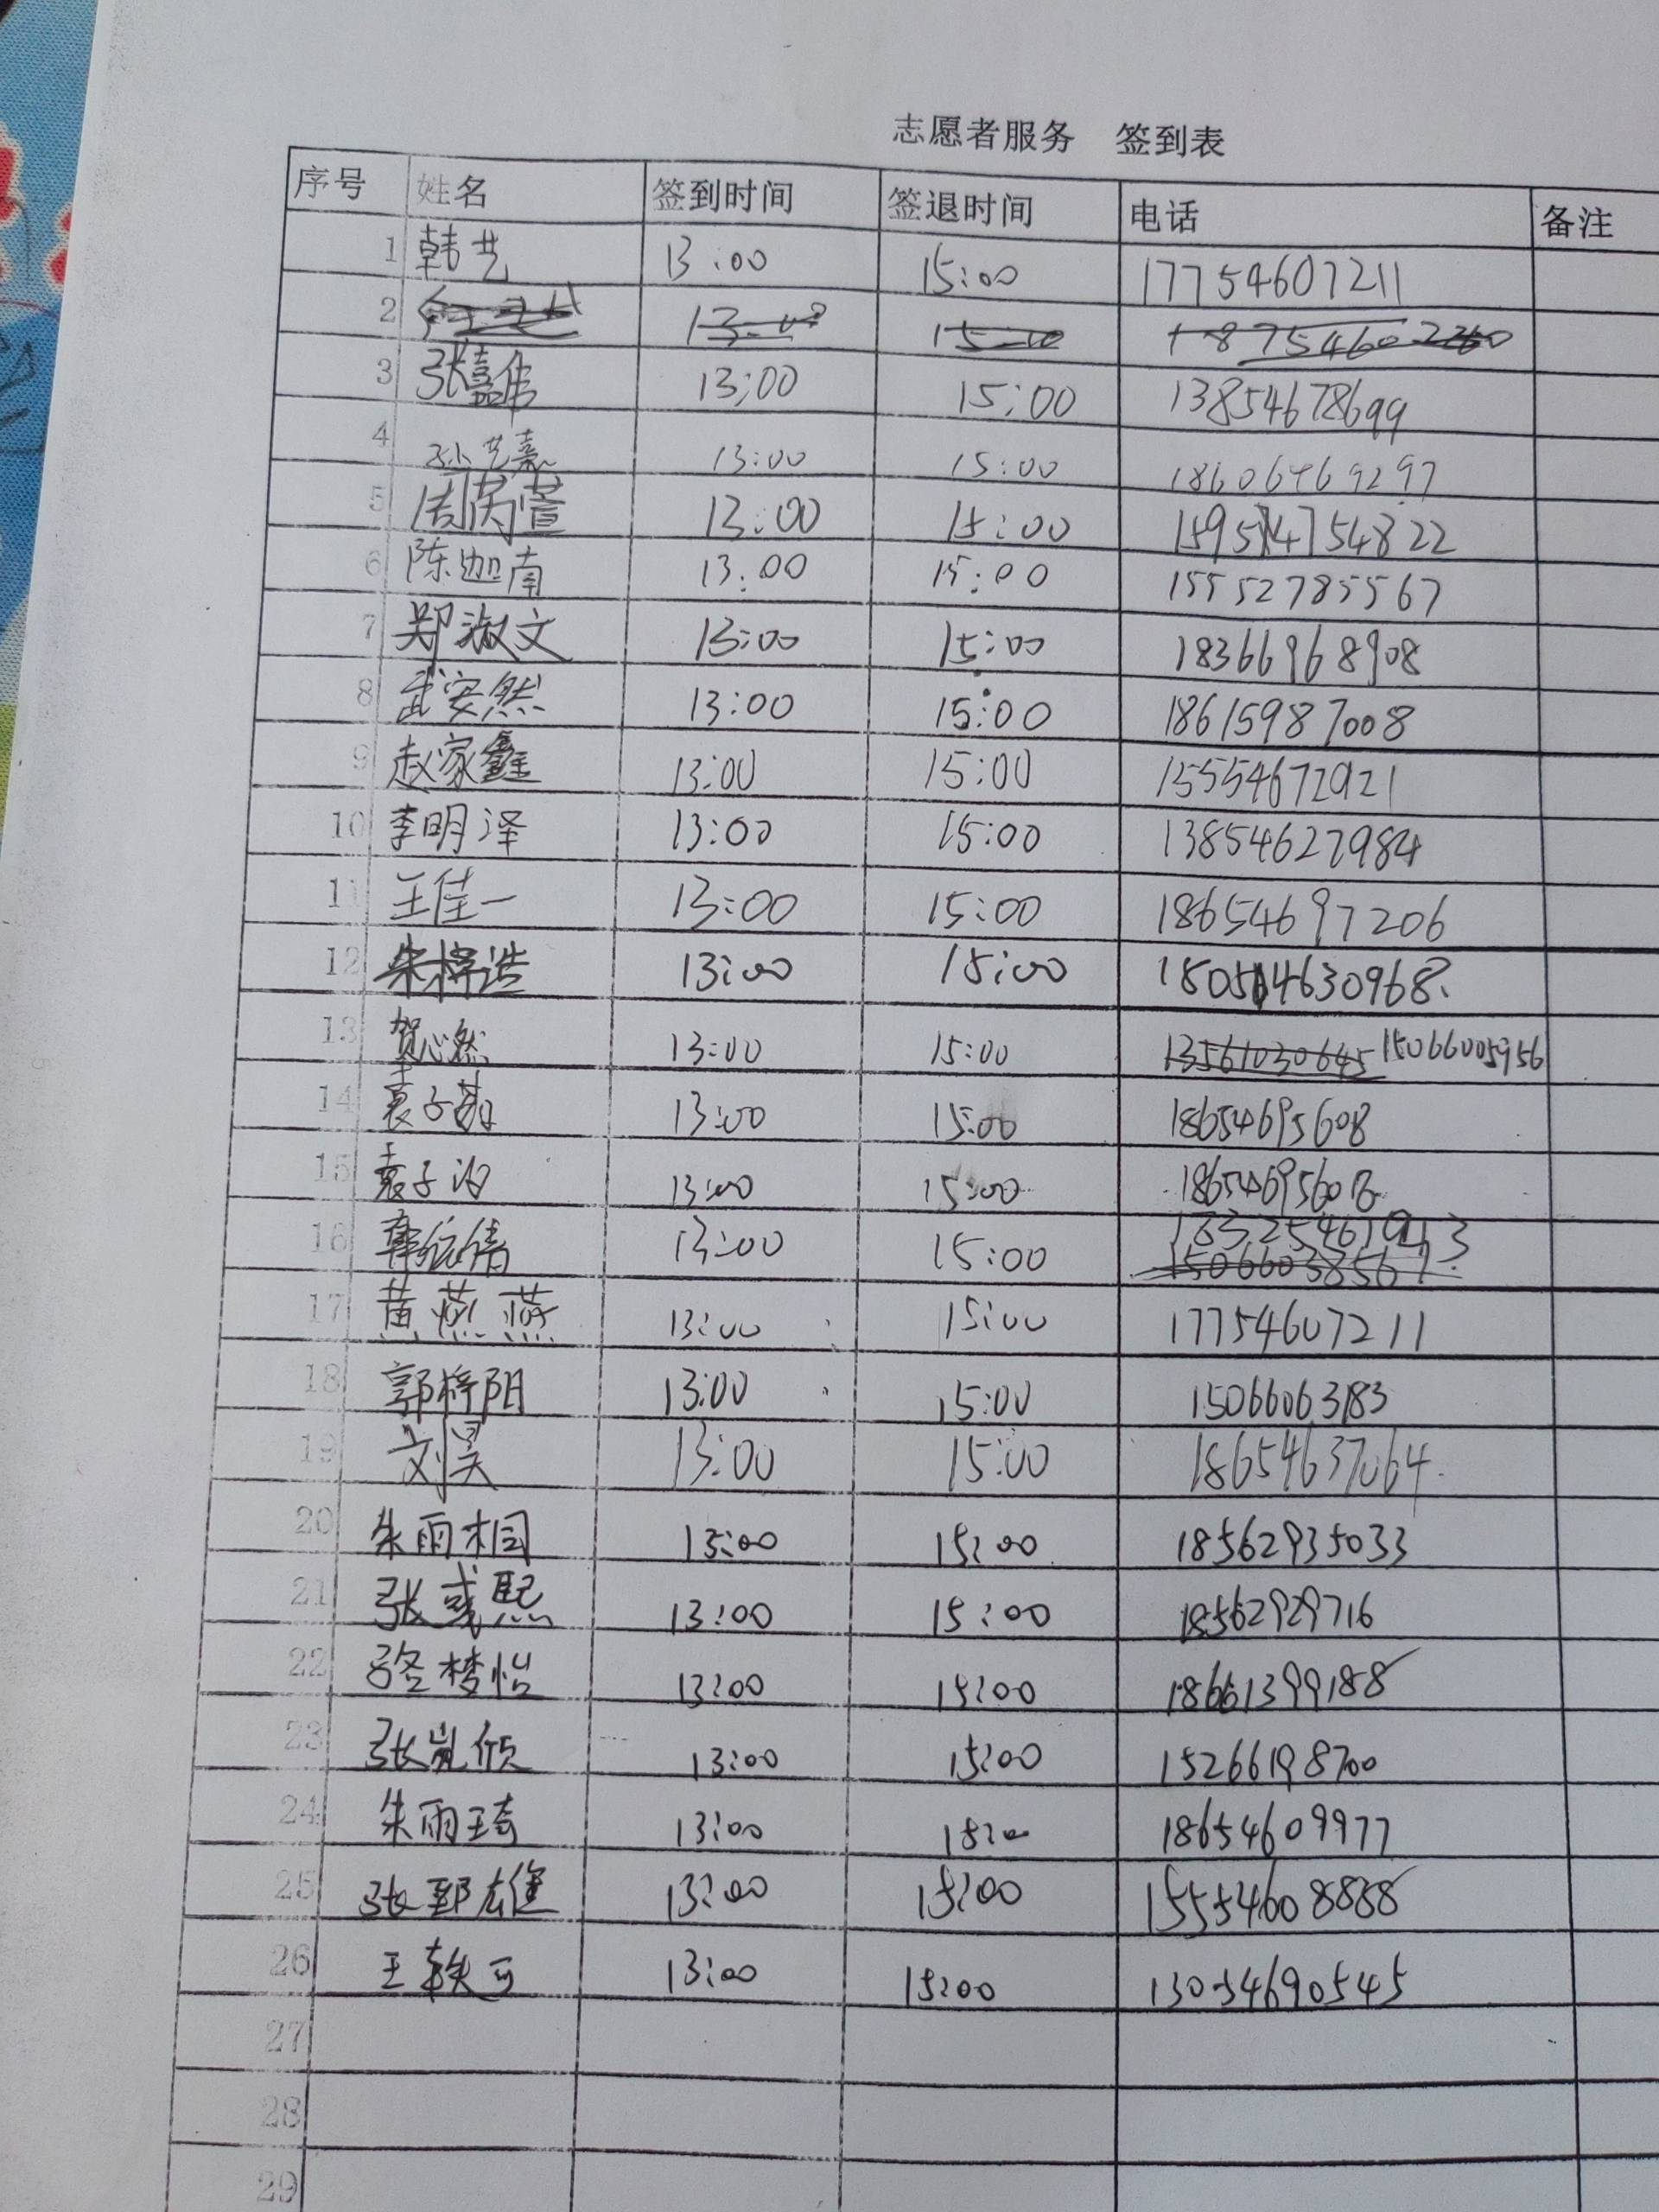 志愿者服务 签到表
序号 姓名 签到时间 签退时间 电话 备注
1 韩艺 13:00 15:00 17754607211
2
3 张嘉伟 13:00 15:00 13854678699
4 孙艺嘉 13:00 15:00 18606469297
5 周芮萱 13:00 15:00
6 陈迦南 13:00 15:00 15552785567
7 郑淑文 13:00 15:00 18366968908
8 武安然 13:00 15:00 18615987008
9 赵家鑫 13:00 15:00 15554672921
10 李明泽 13:00 15:00 13854627984
11 王佳一 13:00 15:00 18654697206
12 朱梓浩 13:00 15:00
13 贺心然 13:00 15:00 13561030645 15066005956
14 袁子 13:00 15:00 18654695608
15 袁子 13:00 15:00 18654695608
16 13:00 15:00
15066038567
17 黄燕燕 13:00 15:00 17754607211
18 郭梓阳 13:00 15:00 15066063183
19 刘昊 13:00 15:00 18654637064
20 朱雨桐 13:00 15:00 18562935033
21 张彧熙 13:00 15:00 18562929716
22 骆梦怡 13:00 15:00 18661399188
23 张岚颀 13:00 15:00 15266198700
24 朱雨琦 13:00 15:00 18654609977
25 张郅雄 13:00 15:00 15554608888
26 王轶可 13:00 15:00 13054690545
27
28
29